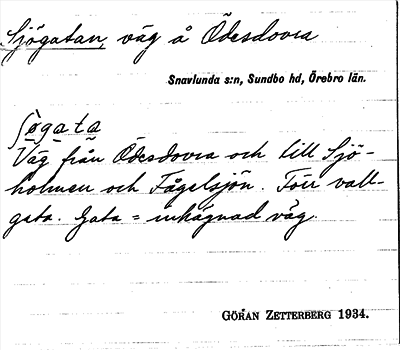 Sjögatan, väg å Ödesdovra
Snavlunda s:n, Sundbo hd, Örebro län.
ʃøgata
Väg från Ödesdovra och till Sjö-
holmen och Fågelsjön. Förr vall-
gata. Gata = inhägnad väg.
GÖRAN ZETTERBERG 1934.